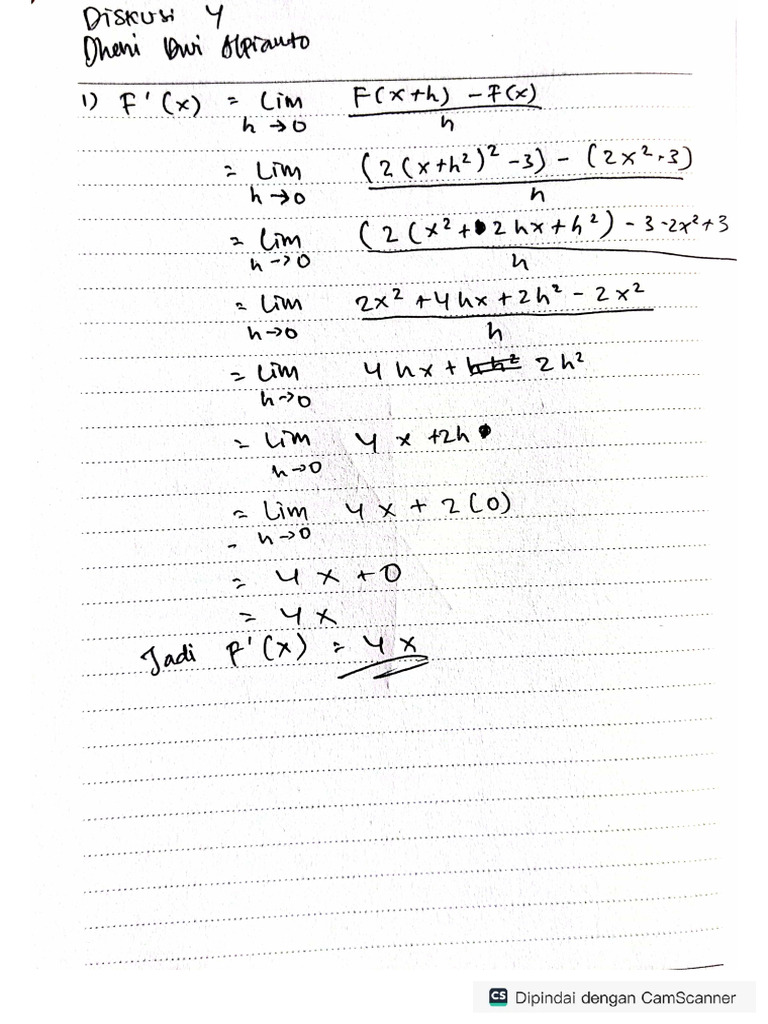 Diskusi 4
Dheni Dwi Alpianto
1) F'(x) = Lim h→0 F(x+h) - F(x) / h
= Lim h→0 (2(x+h²)² -3) - (2x²-3) / h
= Lim h→0 (2(x²+2hx+h²) - 3-2x²+3 / h
= Lim h→0 2x² +4hx+2h² - 2x² / h
= Lim h→0 4hx + 2h²
= Lim h→0 4x +2h
= Lim h→0 4x + 2(0)
= 4x +0
= 4x
Jadi F'(x) = 4x
CS Dipindai dengan CamScanner